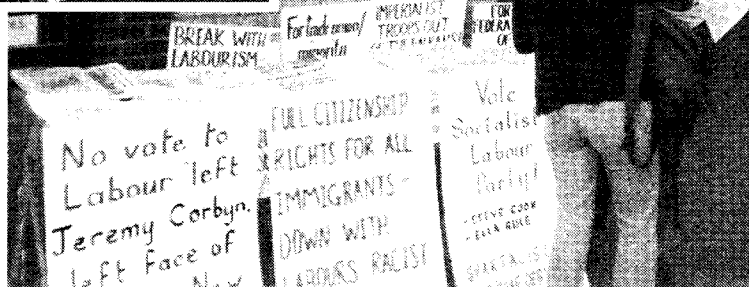 BREAK WITH
LABOURISM
For trade union/
IMPERIALIST
TROOPS OUT
OF THE
FOR
OF
No vote to
Labour 'left'
Jeremy Corbyn,
left face of
New
FULL CITIZENSHIP
RIGHTS FOR ALL
IMMIGRANTS -
DOWN WITH
LABOUR'S RACIST
Vote
Socialist
Labour
Party!
- STEVE COOK
SPARTACIST